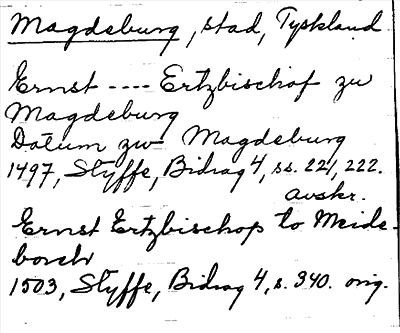 Magdeburg, stad, Tyskland
Ernst ---- Ertzbischof zu
Magdeburg
Datum zw Magdeburg
1497, Styffe, Bidrag 4, ss. 221, 222.
avskr.
Ernst Ertzbischop to Meide-
borch
1503, Styffe, Bidrag 4, s. 340. orig.